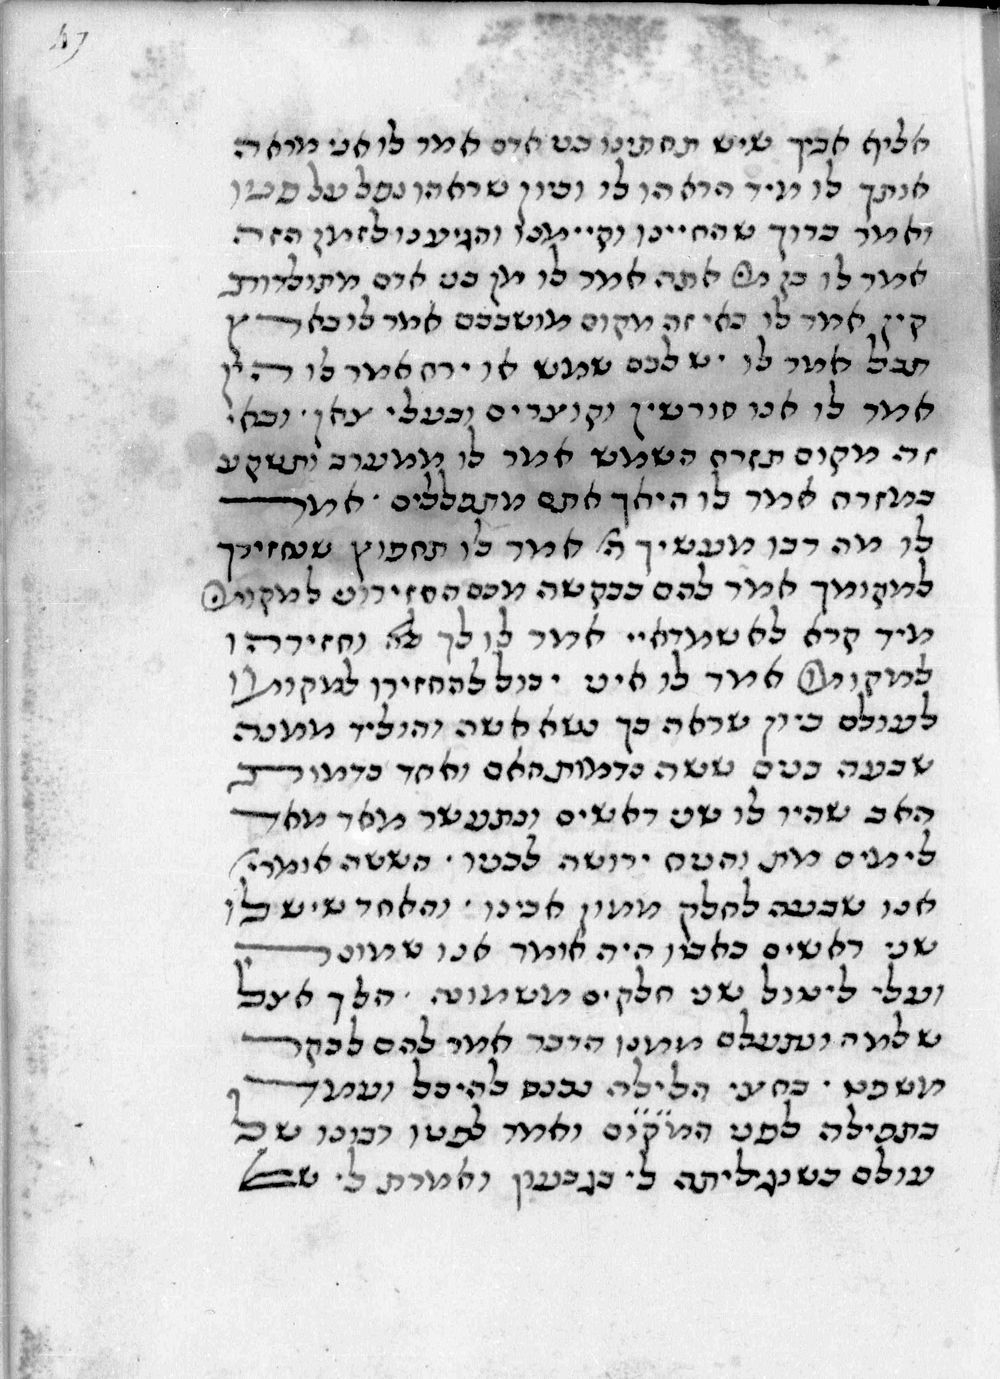 47
אליה אביך שיש תחתינו בני אדם אמר לו אני מראה
אותך לו מיד הראהו לו וכיון שראהו נפל על פניו
ואמר ברוך שהחיינו וקיימנו והגיענו לזמן הזה
אמר לו בן מי אתה אמר לו מן בני אדם מתולדות
קין אמר לו באי זה מקום מושבכם אמר לו בארץ
תבל אמר לו יש לכם שמש או ירח אמר לו הין
אמר לו אנו חורשין וקוצרים ובעלי צאן ובאי
זה מקום תזרח השמש אמר לו ממערב ותשקע
במזרח אמר לו היאך אתם מתפללים אמר
לו מה רבו מעשיך ה' אמר לו תחפוץ שנחזירך
למקומך אמר להם בבקשה מכם החזירוני למקומי
מיד קרא לאשמדאיי אמר לו לך נא וחזירהו
למקומו אמר לו איני יכול להחזירו למקומו
לעולם כיון שראה כך נשא אשה והוליד ממנה
שבעה בנים ששה בדמות האם ואחד בדמות
האב שהיו לו שני ראשים ונתעשר מאד מאד
לימים מת והניח ירושה לבניו הששה אומרי'
אנו שבעה לחלק ממון אבינו והאחד שיש לו
שני ראשים כאביו היה אומר אנו שמונה
ועלי ליטול שני חלקים משמונה הלך אצל
שלמה ונתעלם ממנו הדבר אמר להם לבקר
משפט בחצי הלילה נכנס להיכל ועמד
בתפילה לפני המקום ואמר לפניו רבונו של
עולם כשנגליתה לי בגבעון ואמרת לי שאל